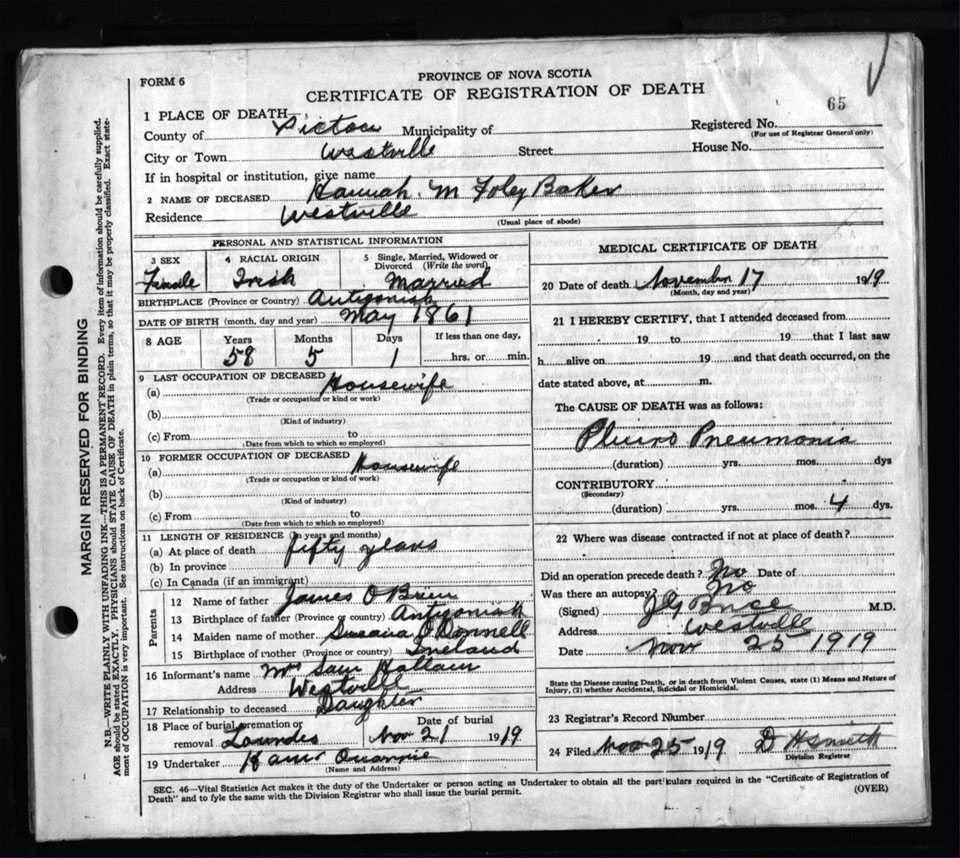 FORM 6
PROVINCE OF NOVA SCOTIA
CERTIFICATE OF REGISTRATION OF DEATH
65
1 PLACE OF DEATH
County of Pictou Municipality of
Registered No.
(For use of Registrar General only)
City or Town Westville Street House No.
If in hospital or institution, give name
2 NAME OF DECEASED Hannah M Foley Baker
Residence Westville
(Usual place of abode)
PERSONAL AND STATISTICAL INFORMATION
3 SEX Female
4 RACIAL ORIGIN Irish
5 Single, Married, Widowed or Divorced (Write the word) Married
BIRTHPLACE (Province or Country) Antigonish
DATE OF BIRTH (month, day and year) May 1861
8 AGE Years 58 Months 5 Days 1 If less than one day, hrs. or min.
9 LAST OCCUPATION OF DECEASED
(a) Housewife
(Trade or occupation or kind or work)
(b)
(Kind of industry)
(c) From to
(Date from which to which so employed)
10 FORMER OCCUPATION OF DECEASED
(a) Housewife
(Trade or occupation or kind of work)
(b)
(Kind of industry)
(c) From to
(Date from which to which so employed)
11 LENGTH OF RESIDENCE (In years and months)
(a) At place of death fifty years
(b) In province
(c) In Canada (if an immigrant)
Parents
12 Name of father James O Brien
13 Birthplace of father (Province or country) Antigonish
14 Maiden name of mother Susana O Donnell
15 Birthplace of mother (Province or country) Ireland
16 Informant's name Mrs Sam Hallam
Address Westville
17 Relationship to deceased Daughter
18 Place of burial, cremation or removal Lourdes
Date of burial Nov 21 1919
19 Undertaker
(Name and Address)
MEDICAL CERTIFICATE OF DEATH
20 Date of death November 17 1919
(Month, day and year)
21 I HEREBY CERTIFY, that I attended deceased from
19 to 19 that I last saw
h alive on 19 and that death occurred, on the
date stated above, at m.
The CAUSE OF DEATH was as follows:
Pleuro Pneumonia
(duration) yrs. mos. dys
CONTRIBUTORY
(Secondary)
(duration) yrs. mos. 4 dys.
22 Where was disease contracted if not at place of death?
Did an operation precede death? No Date of
Was there an autopsy? No
(Signed) M.D.
Address Westville
Date Nov 25 1919
State the Disease causing Death, or in death from Violent Causes, state (1) Means and Nature of
Injury, (2) whether Accidental, Suicidal or Homicidal.
23 Registrar's Record Number
24 Filed Nov 25 1919 D H Smith
Division Registrar
SEC. 46—Vital Statistics Act makes it the duty of the Undertaker or person acting as Undertaker to obtain all the particulars required in the "Certificate of Registration of
Death" and to fyle the same with the Division Registrar who shall issue the burial permit.
(OVER)
MARGIN RESERVED FOR BINDING
N.B.—WRITE PLAINLY WITH UNFADING INK—THIS IS A PERMANENT RECORD. Every item of information should be carefully supplied.
AGE should be stated EXACTLY. PHYSICIANS should STATE CAUSE OF DEATH in plain terms, so that it may be properly classified. Exact state-
ment of OCCUPATION is very important. See instructions on back of Certificate.